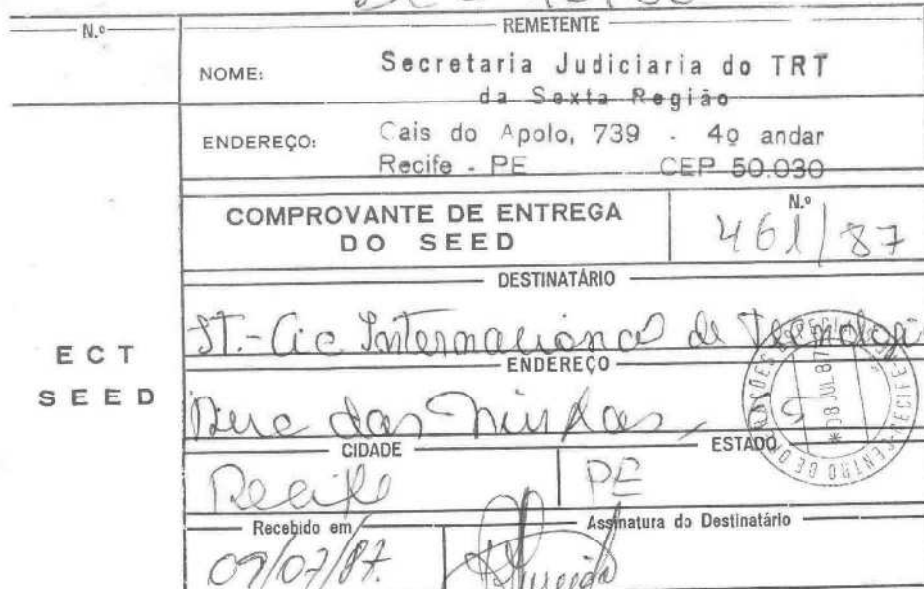 N.º
REMETENTE
NOME: Secretaria Judiciaria do TRT
da Sexta Região
ENDEREÇO: Cais do Apolo, 739 - 4º andar
Recife - PE CEP 50.030
COMPROVANTE DE ENTREGA
DO SEED
N.º
461/87
DESTINATÁRIO
ST.-Cia Internacional de Tecnologia
ECT
SEED
ENDEREÇO
Rua das Ninfas,
CIDADE
Recife
ESTADO
PE
08 JUL 87
CENTRO DE OPERAÇÕES ESPECIAIS
RECIFE
Recebido em
09/07/87.
Assinatura do Destinatário